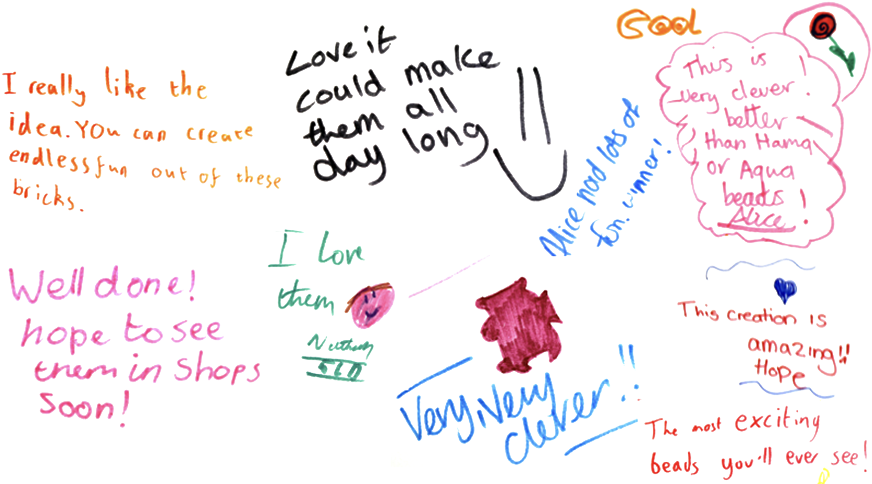 I really like the
idea. You can create
endless fun out of these
bricks.
Love it
could make
them all
day long
Cool
This is
very clever!
better
than Hama
or Aqua
beads
Alice!
Alice had lots of
fun. winner!
Well done!
hope to see
them in Shops
Soon!
I love
them
Very, Very
clever!!
This creation is
amazing!!
Hope
The most exciting
beads you'll ever see!